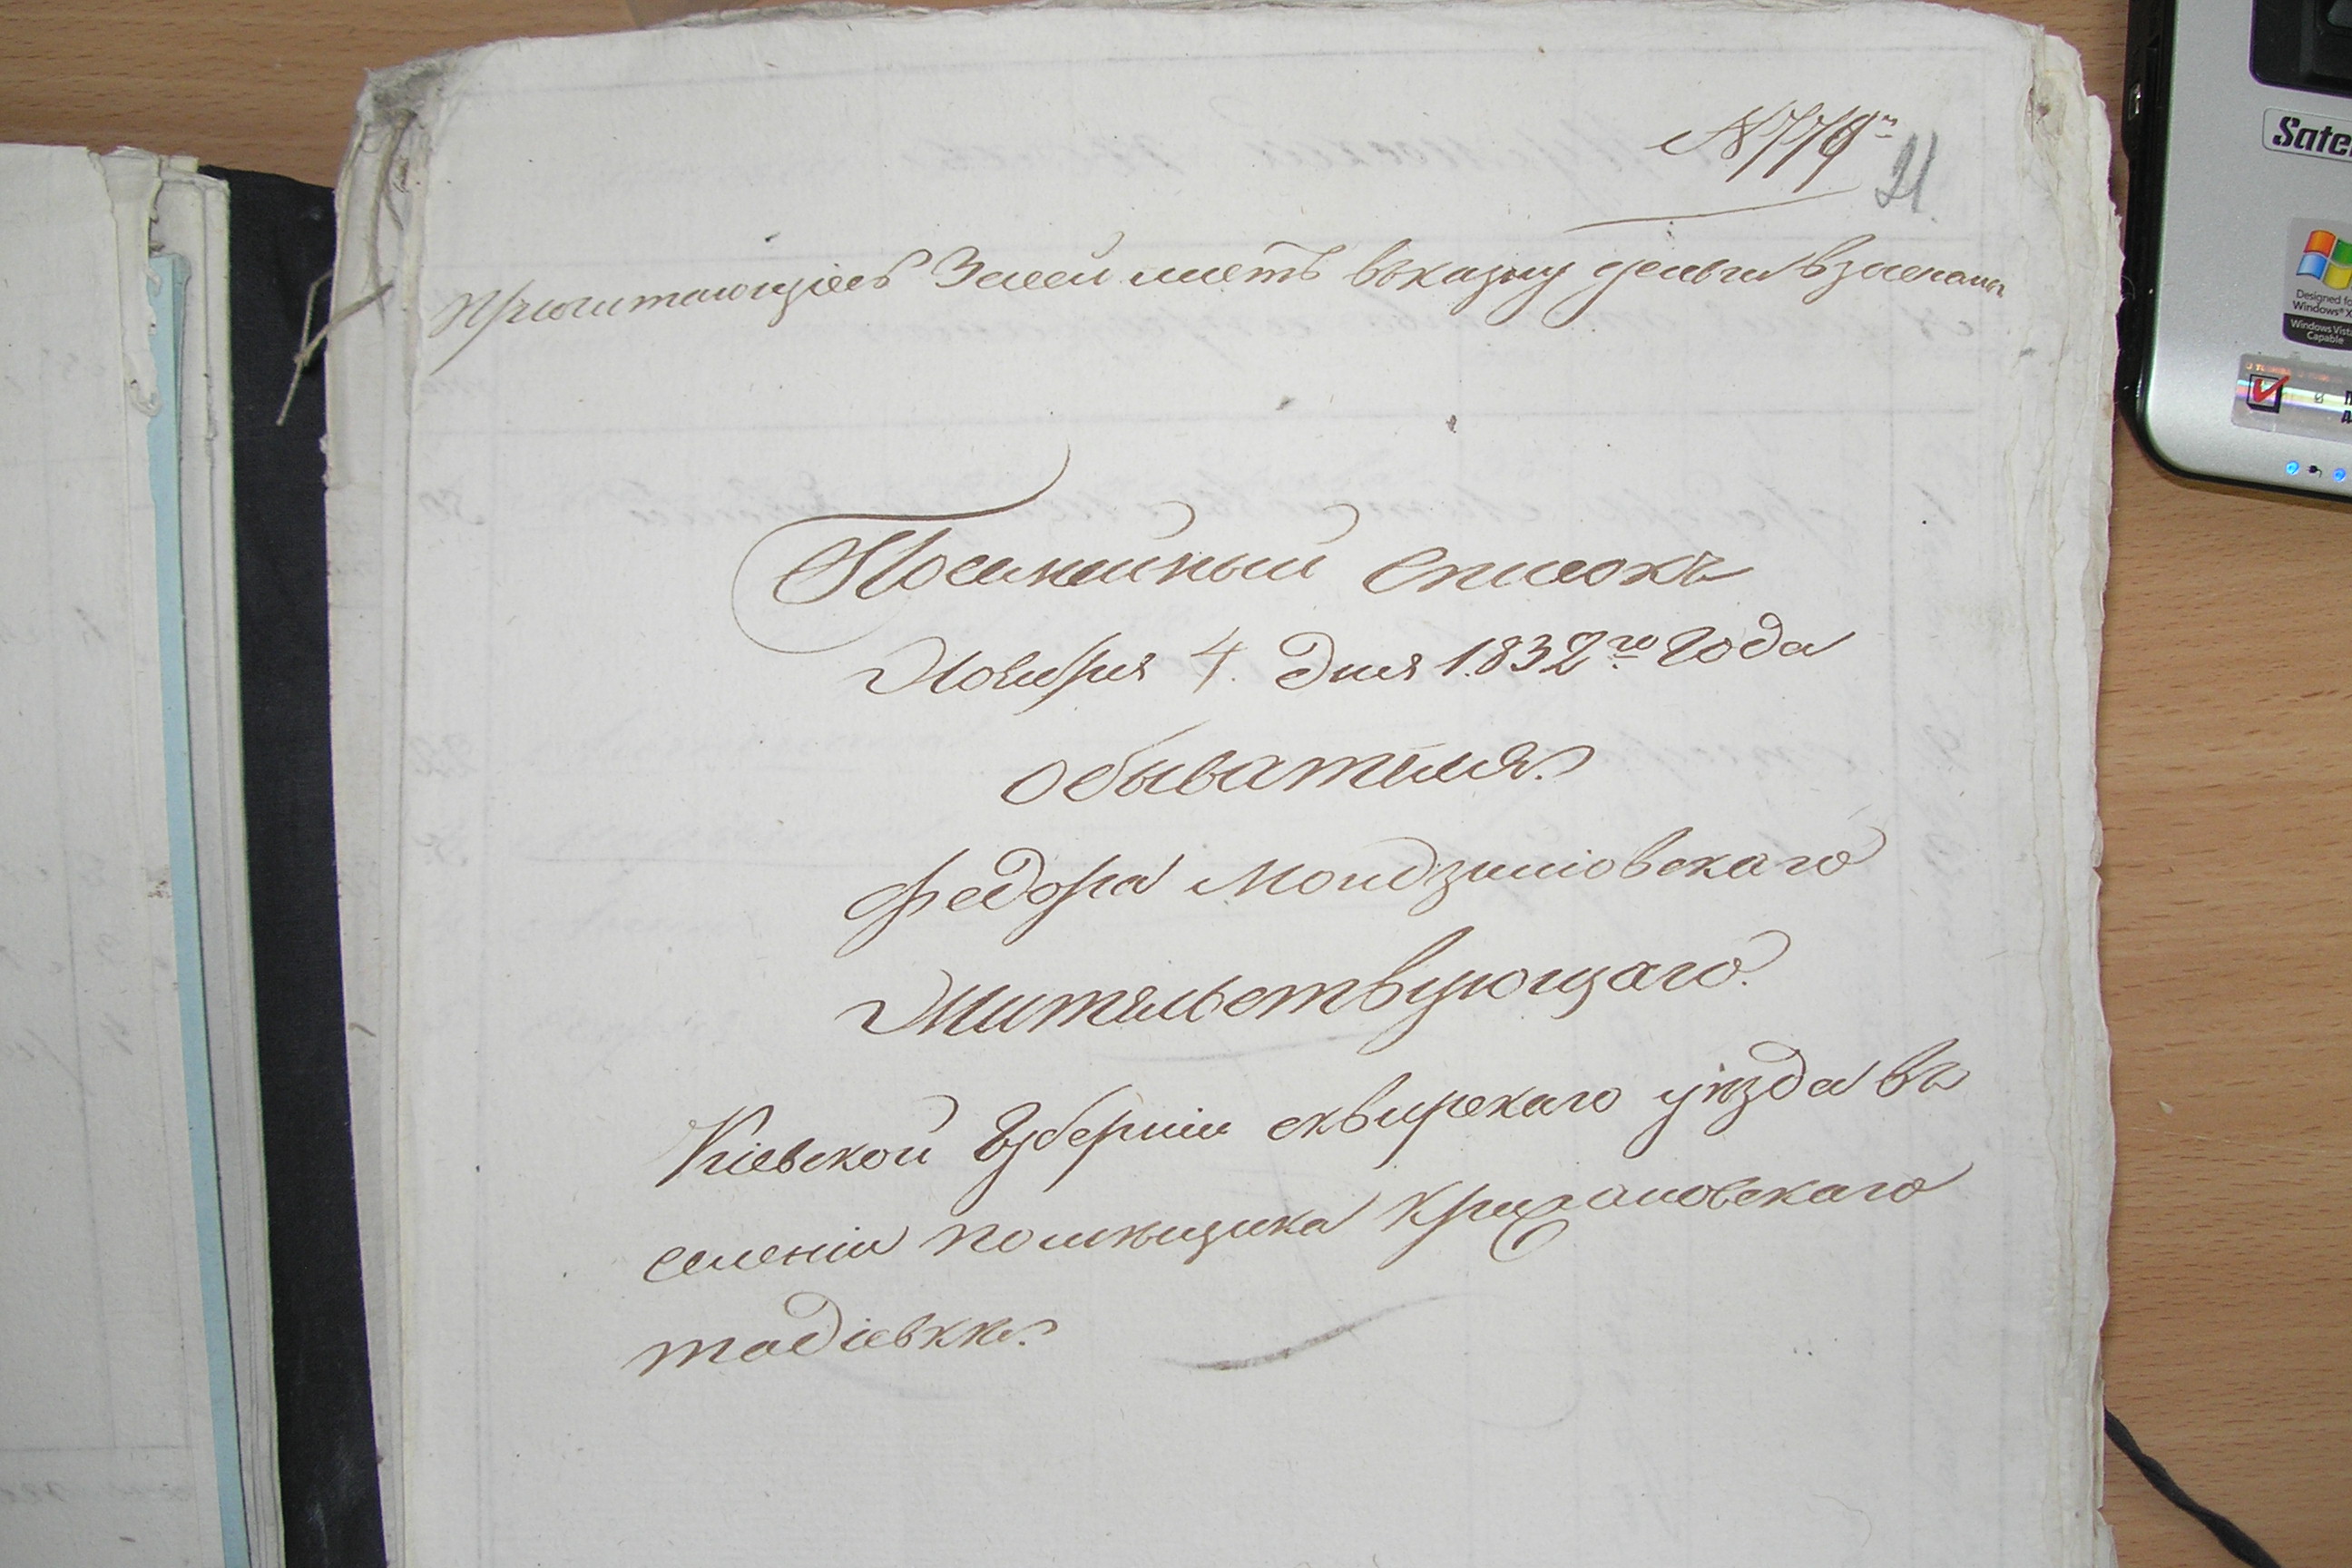 21
Причитающіесь За сей листъ въ казну деньги взысканы
Посемейный списокъ
Ноября 4. Дня 1832го Года
Обывателя.
Федора Мондзиліовскаго
Жительствующаго.
Кіевской Губерніи сквирскаго уѣзда въ
селеніи помѣщика Крижановскаго
тадіевки.
Sate
Designed fo
Windows® X
Windows Vista
Capable